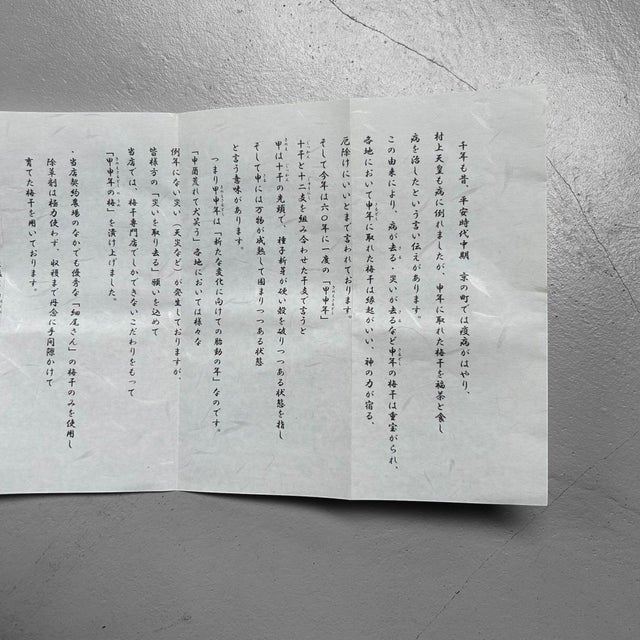 千年も昔、平安時代中期　京の町では疫病がはやり、
村上天皇も病に倒れましたが、申年に取れた梅干を福茶と食し
病を治したという言い伝えがあります。
この由来により、病が去る、災いが去るなど申年の梅干は重宝がられ、
各地において申年に取れた梅干は縁起がいい、神の力が宿る、
厄除けにいいとまで言われております。
そして今年は六〇年に一度の「甲申年」
十干と十二支を組み合わせた干支で言うと
甲は十干の先頭で、種子新芽が硬い殻を破りつつある状態を指し
そして申には万物が成熟して固まりつつある状態
と言う意味があります。
つまり甲申年は「新たな変化に向けての胎動の年」なのです。
「申酉荒れて犬笑う」各地においては様々な
例年にない災い（天災など）が発生しておりますが、
皆様方の「災いを取り去る」願いを込めて
当店では、梅干専門店でしかできないこだわりをもって
「甲申年の梅」を漬け上げました。
・当店契約農場のなかでも優秀な「細尾さん」の梅干のみを使用し
除草剤は極力使わず、収穫まで丹念に手間隙かけて
育てた梅干を用いております。